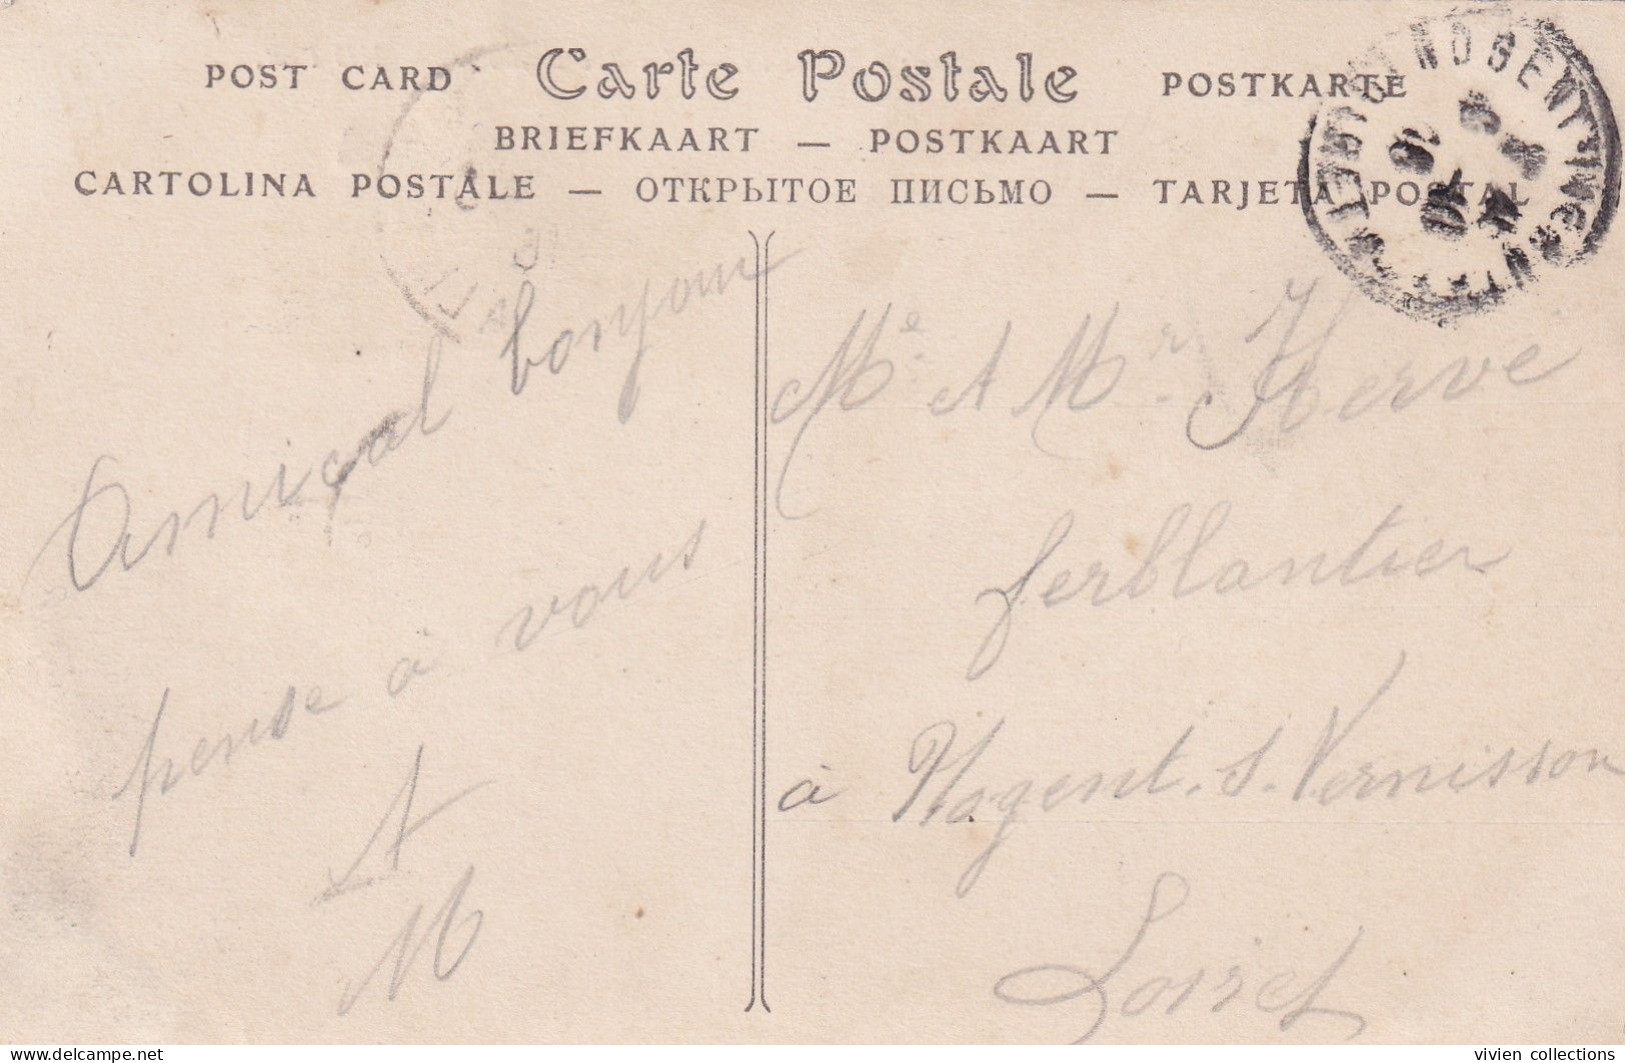 POST CARD Carte Postale POSTKARTE
BRIEFKAART — POSTKAART
CARTOLINA POSTALE — ОТКРЫТОЕ ПИСЬМО — TARJETA POSTAL
NOGENT
Amical bonjour
pense à vous
A
M
Me et Mr Herve
ferblantier
à Nogent. s. Vernisson
Loiret
vivien collections